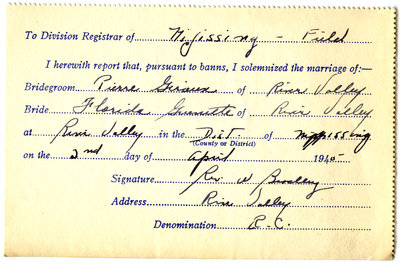 To Division Registrar of Nipissing - Field
I herewith report that, pursuant to banns, I solemnized the marriage of:—
Bridegroom Pierre Giroux of River Valley
Bride Florida of River Valley
at River Valley in the Dist. of Nipissing
(County or District)
on the 2nd day of April 1940
Signature Rev. W
Address River Valley
Denomination R.C.